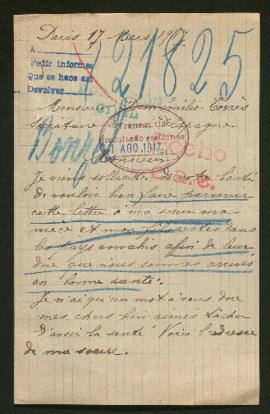 Paris 17 Mars 1917
A
Pedir informes
Que se hace así
Devolver
21825
Monsieur Domicilio Torrès
Secrétaire Espagne
1 AGO. 1917
Monsieur
Je viens sollicit votre bonté
de vouloir bien faire parvenir
cette lettre a ma sœur ma
niece et mon restés dans
les pays envahis afin de leur
dire que nous sommes arrivés
en bonne santé.
Je n'ai qu'un mot à vous dire
mes chers bien aimés tachez
d'avoir la santé Voici l'adresse
de ma sœur.